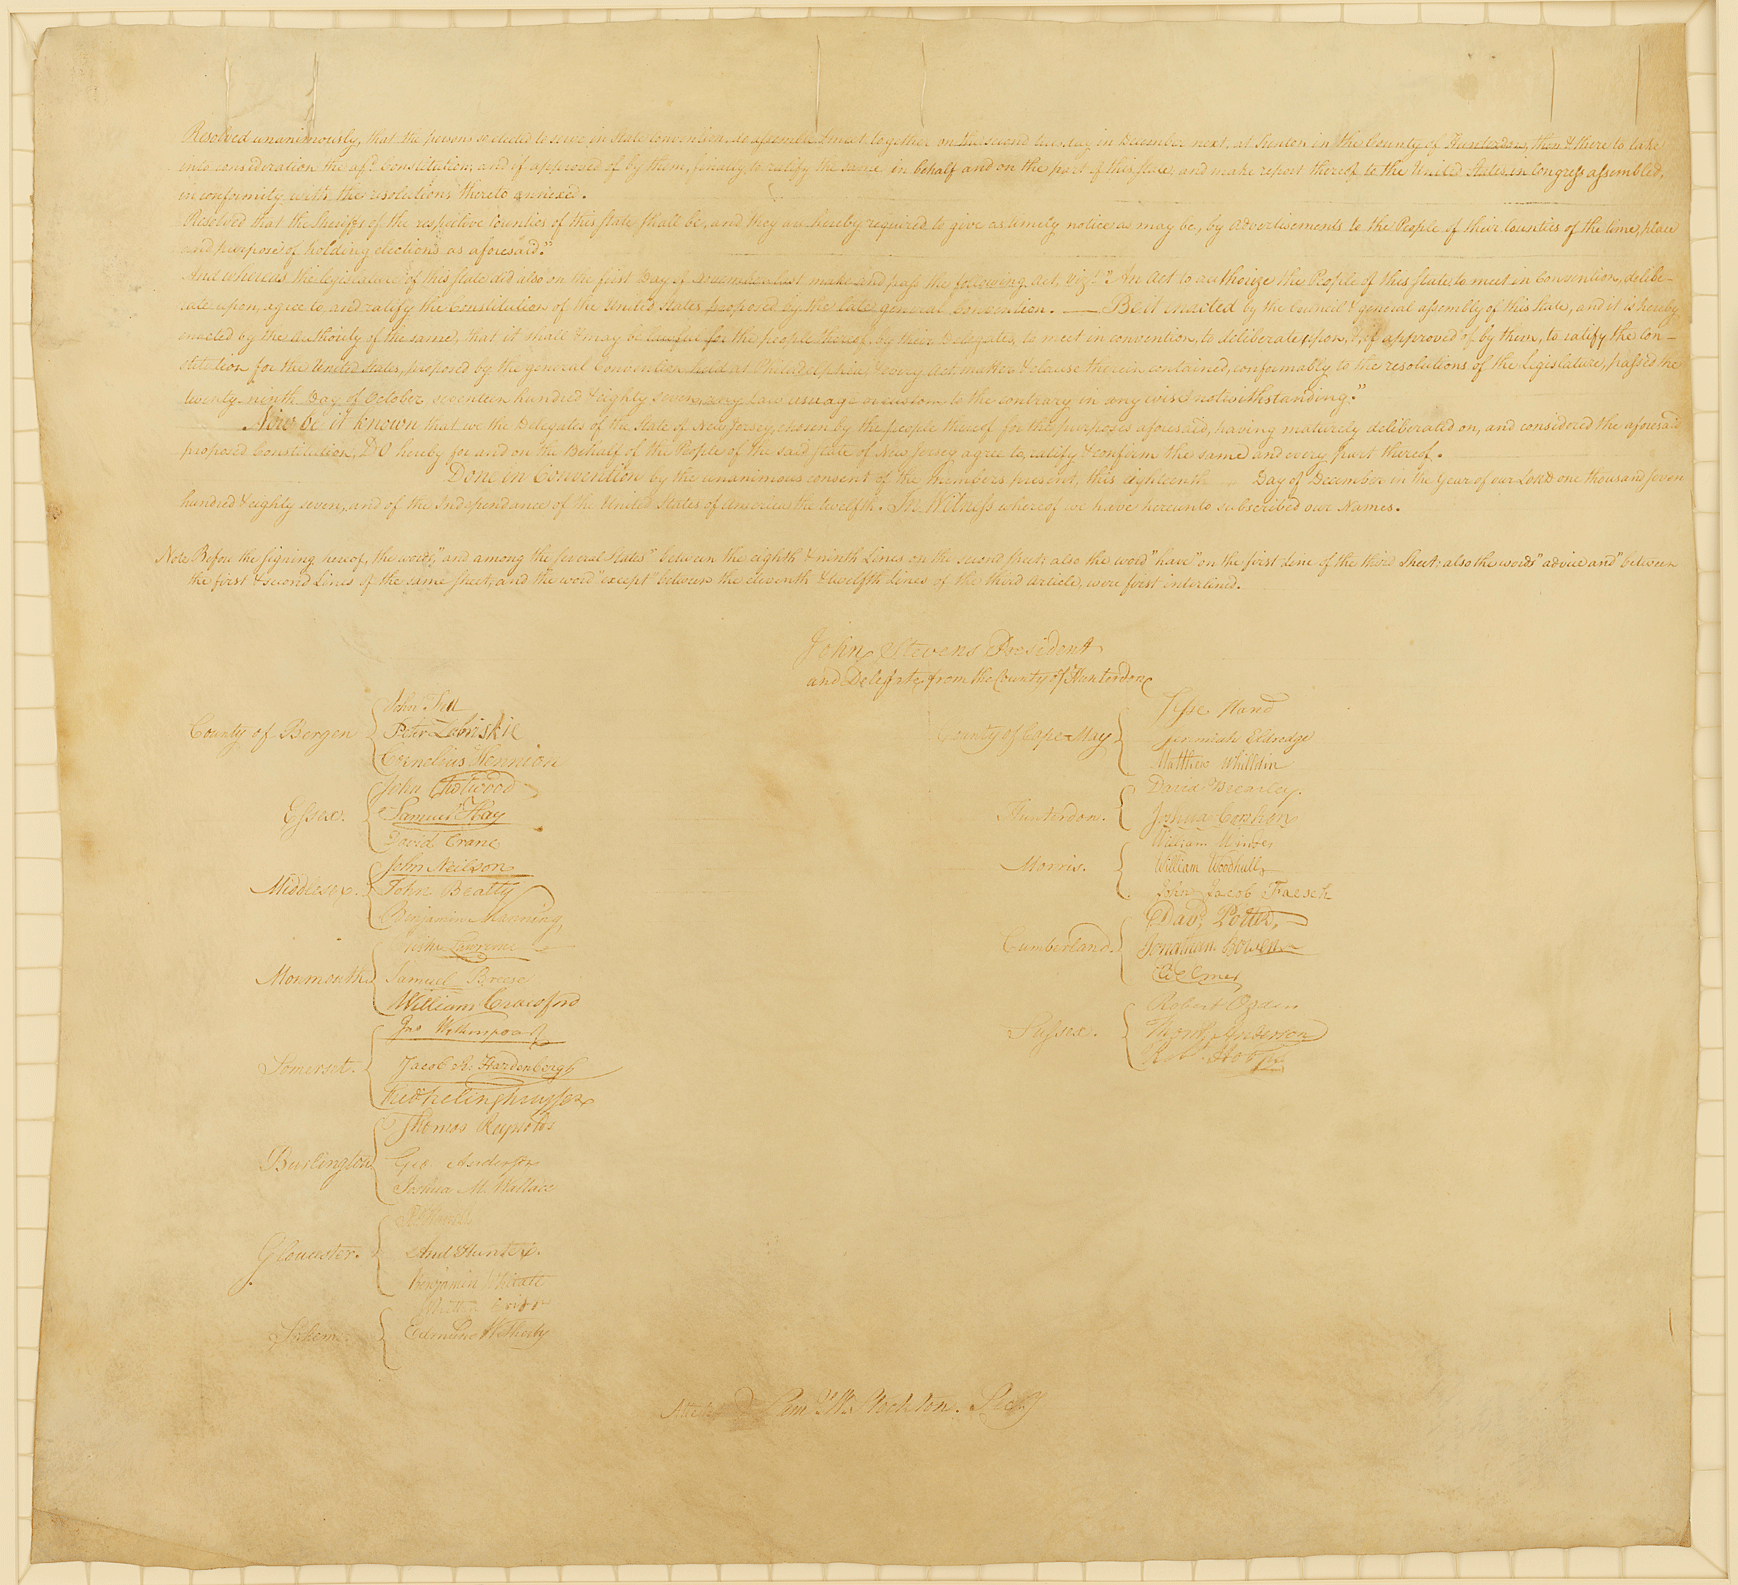 Resolved unanimously, that the persons so elected to serve in State Convention, do assemble & meet together on the second tuesday in December next, at Trenton in the County of Hunterdon, then & there to take
into consideration the afsd. Constitution; and if approved of by them, finally to ratify the same in behalf and on the part of this state; and make report thereof to the United States in Congress assembled,
in conformity with the resolutions thereto annexed.
Resolved that the Sheriffs of the respective Counties of this State shall be, and they are hereby required to give as timely notice as may be, by Advertisements to the People of their Counties of the time, place
and purpose of holding elections as aforesaid."
And whereas the legislature of this state did also on the first Day of November last make and pass the following Act, vizt. "An Act to authorise the People of this state to meet in Convention, delibe-
rate upon, agree to, and ratify the Constitution of the United States, proposed by the late general Convention. — Be it enacted by the Council & general assembly of this state, and it is hereby
enacted by the Authority of the same, that it shall & may be lawful for the people thereof, by their Delegates, to meet in convention, to deliberate upon, & if approved of by them, to ratify the Con-
stitution for the United States, proposed by the general Convention held at Philadelphia, & every act, matter & clause therein contained, conformably to the resolutions of the legislature, passed the
twenty-ninth Day of October seventeen hundred & eighty seven, any law usage or custom to the contrary in any wise notwithstanding."
Now be it known that we the Delegates of the State of New Jersey, chosen by the people thereof for the purposes aforesaid, having maturely deliberated on, and considered the aforesaid
proposed Constitution, DO hereby for and on the Behalf of the People of the said state of New Jersey agree to, ratify & confirm the same and every part thereof.
Done in Convention by the unanimous consent of the members present, this eighteenth Day of December in the Year of our LORD one thousand seven
hundred & eighty seven, and of the Independance of the United States of America the twelfth. In Witness whereof we have hereunto subscribed our Names.
Note Before the signing hereof, the words, "and among the several states" between the eighth & ninth Lines on the second sheet: also the word "have" on the first line of the third Sheet: also the words "advice and" between
the first & second Lines of the same sheet, and the word "except" between the eleventh & twelfth Lines of the third article, were first interlined.
John Stevens President
and Delegate from the County of Hunterdon
County of Bergen
John Fell
Peter Zobriskie
Cornelius Hennion
Essex.
John Chetwood
Samuel Hay
David Crane
Middlesex.
John Neilson
John Beatty
Benjamin Manning
Monmouth
Elisha Lawrence
Samuel Breese
William Crawford
Somerset.
Jno Witherspoon
Jacob R. Hardenbergh
Fredk Frelinghuysen
Burlington
Thomas Reynolds
Geo. Anderson
Joshua M. Wallace
Gloucester.
Rd Howell
Andw Hunter.
Benjamin Whitall
Salem
Whitten Cripps
Edmund Wetherby
County of Cape-May
Jesse Hand
Jeremiah Eldredge
Matthew Whilldin
Hunterdon.
David Brearley.
Joshua Corshon
Morris.
William Windes
William Woodhull
John Jacob Faesch
Cumberland.
David Potter,
Jonathan Bowen
Eli Elmer
Sussex.
Robert Ogden
Thomas Anderson
Robt Hoops
Attest Saml W. Stockton. Secy